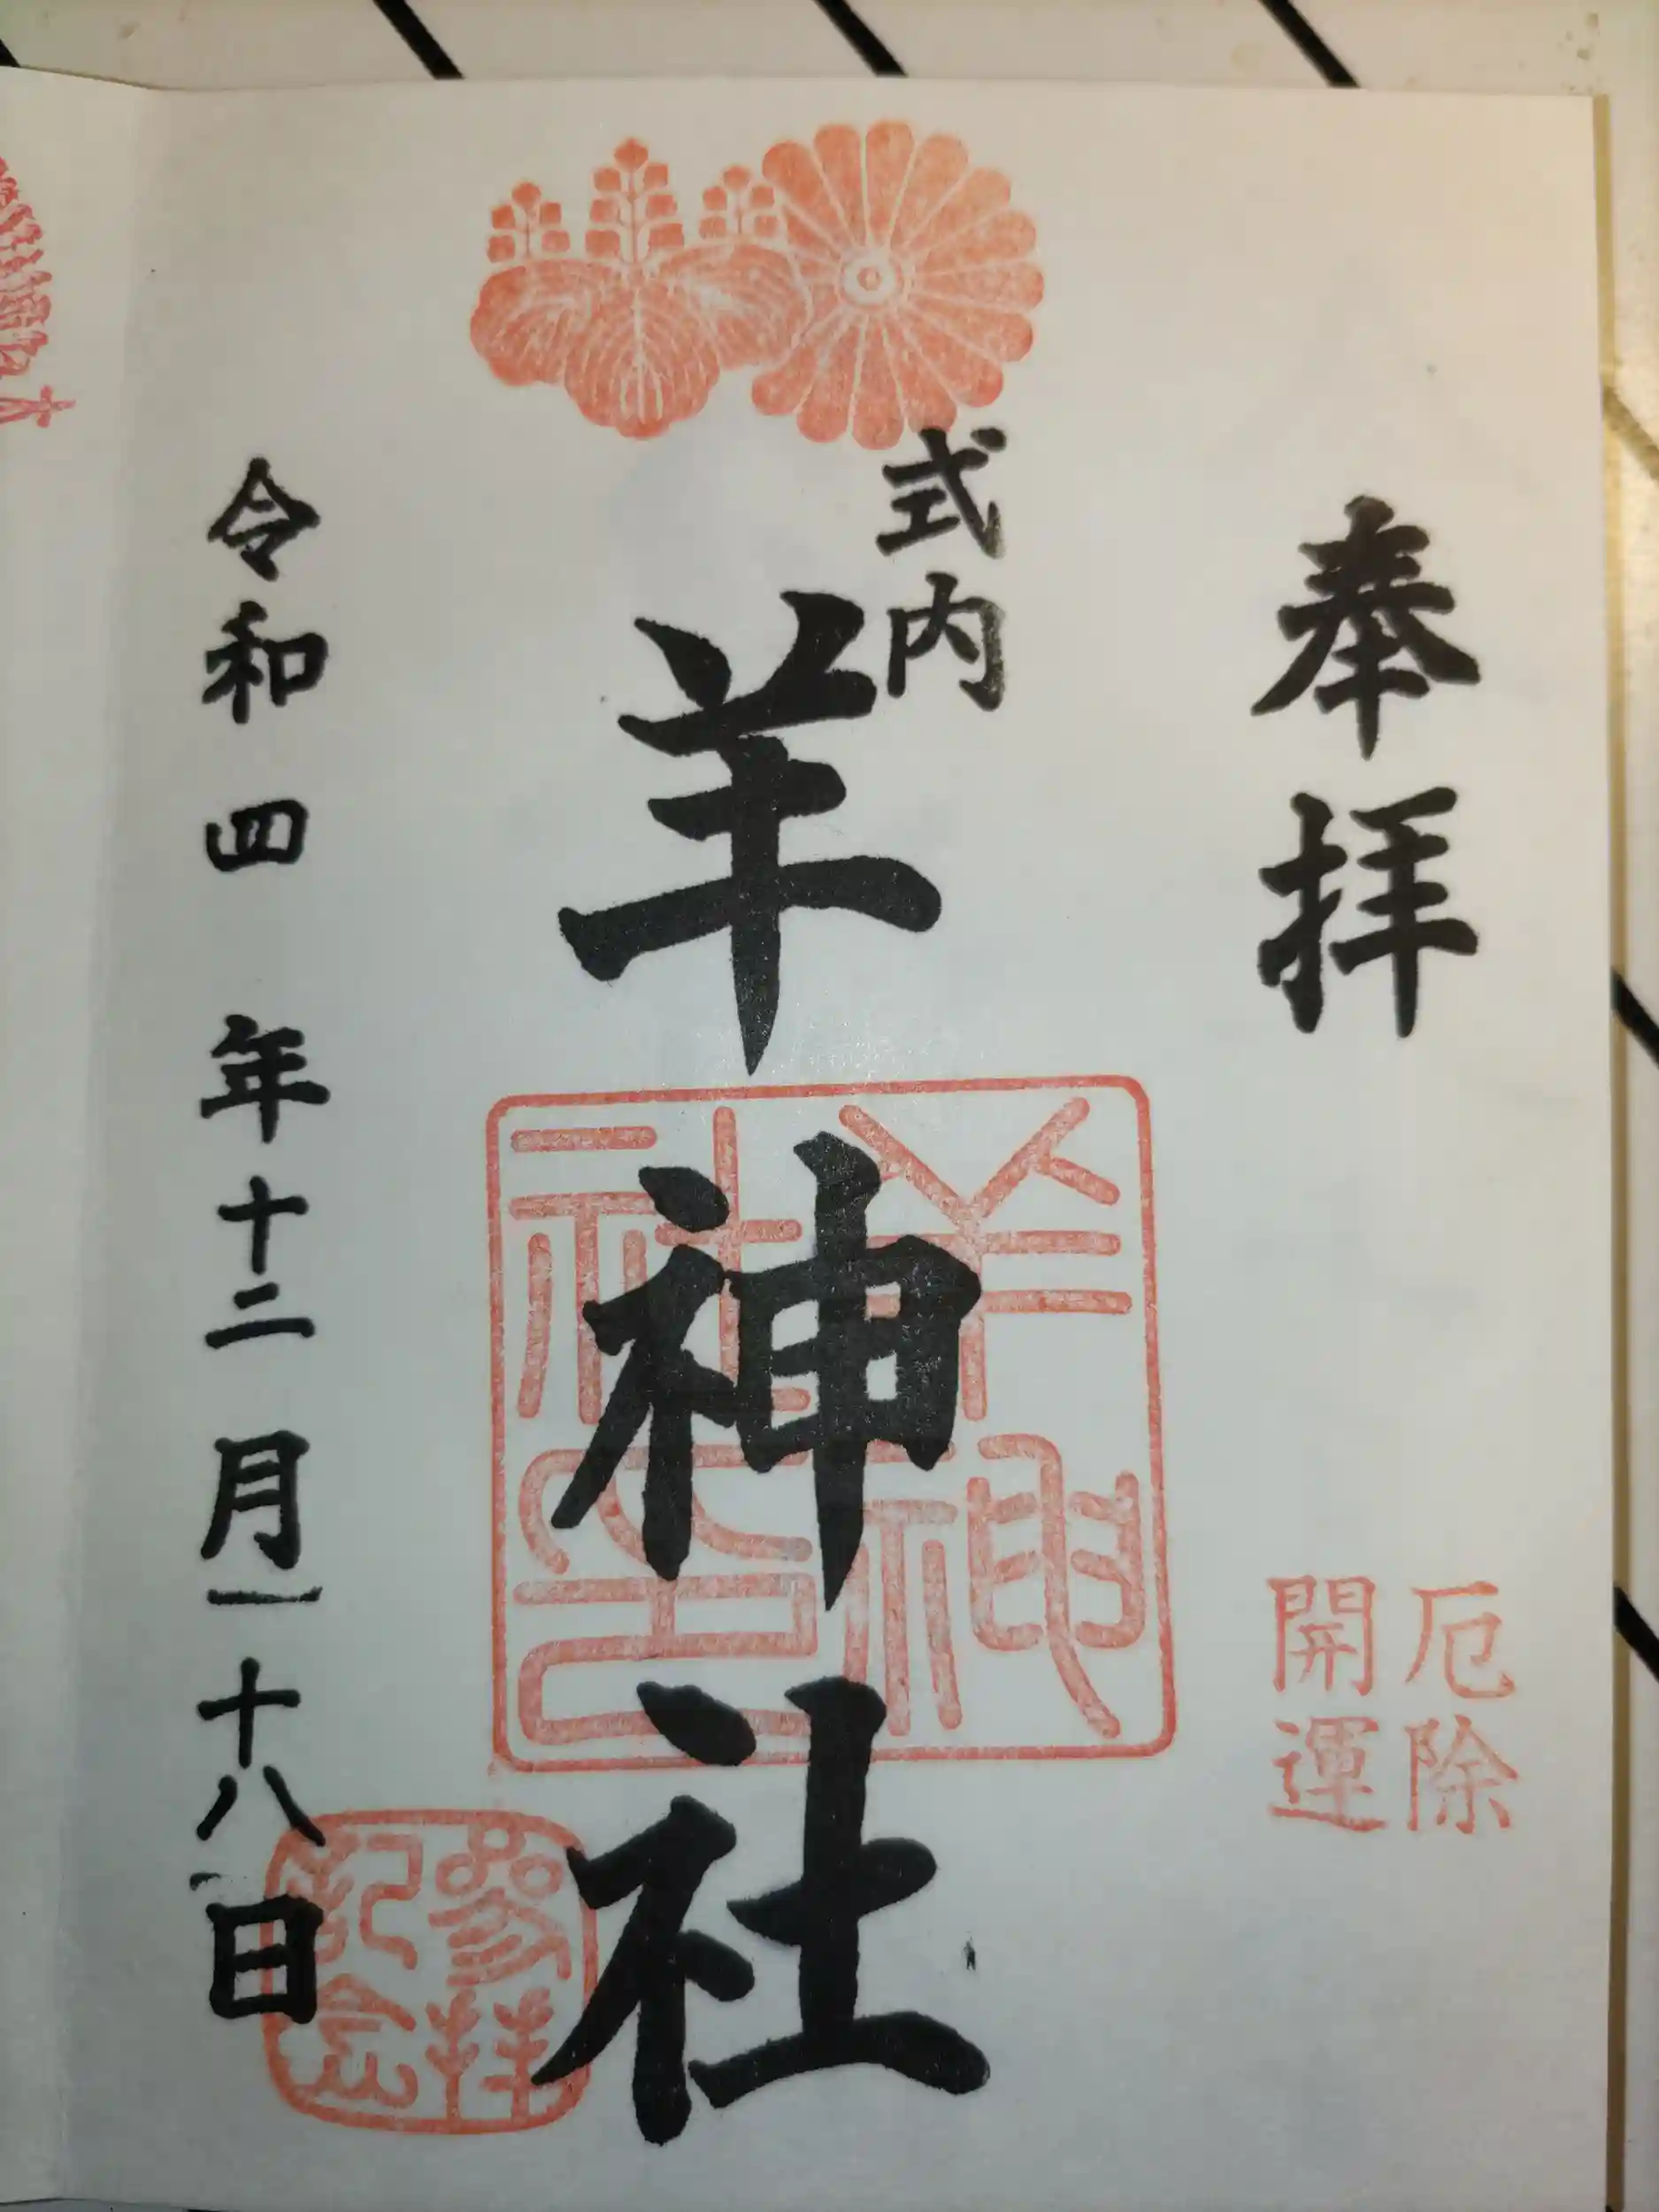 奉拝
厄除
開運
式内
羊神社
羊神
社之印
令和四年十二月二十八日
参拝
記念